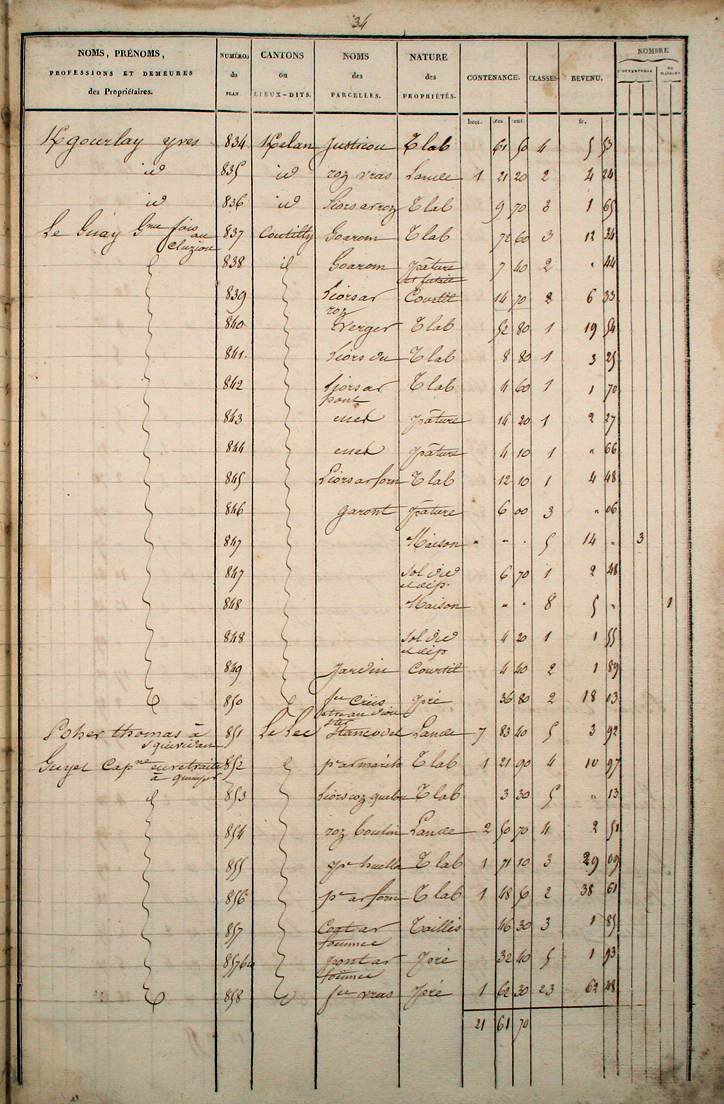 34
NOMS, PRÉNOMS, PROFESSIONS ET DEMEURES des Propriétaires. NUMÉROS du PLAN CANTONS ou LIEUX-DITS. NOMS des PARCELLES. NATURE des PROPRIÉTÉS. CONTENANCE. CLASSES. REVENU. NOMBRE D'OUVERTURES. DE MAISONS
hect. ares cent. fr.
gourlay yves 834 Justiciou T lab 61 50 4 5 53
id 835 id roz vras Lande 1 21 20 2 4 24
id 836 id Liorsarroz T lab 9 70 3 1 65
Le Guay Gme fois au Cluziou 837 Coutilly Goarom T lab 72 60 3 12 34
838 id Goarom pâture 7 40 2 " 44
839 Liorsar roz Courtil 14 70 2 6 33
840 Verger T lab 52 80 1 19 54
841 Liors du T lab 8 80 1 3 25
842 Liorsar pont T lab 4 60 1 1 70
843 pâture 14 20 1 2 27
844 pâture 4 10 1 " 66
845 Liorsarforn T lab 12 10 1 4 48
846 garont pâture 6 00 3 " 06
847 Maison " " " 5 14 " 3
847 Sol d'id et dép. 6 70 1 2 48
848 Maison " " 8 5 " 1
848 Sol d'id et dép 4 20 1 1 55
849 Jardin Courtil 4 40 2 1 89
850 Pré 36 80 2 18 03
Poher thomas à 851 Le Lec Lande 7 83 40 5 3 92
Guyet Capne en retraite à quimper 852 T lab 1 21 90 4 10 97
853 T lab 3 30 5 " 13
854 roz Lande 2 50 70 4 2 51
855 pr huella T lab 1 71 10 3 29 09
856 pr arforn T lab 1 48 50 2 38 61
857 Coat ar Taillis 46 30 3 1 85
857bis pont ar Pré 32 40 5 1 93
858 vras Pré 1 62 30 23 62 48
21 61 70